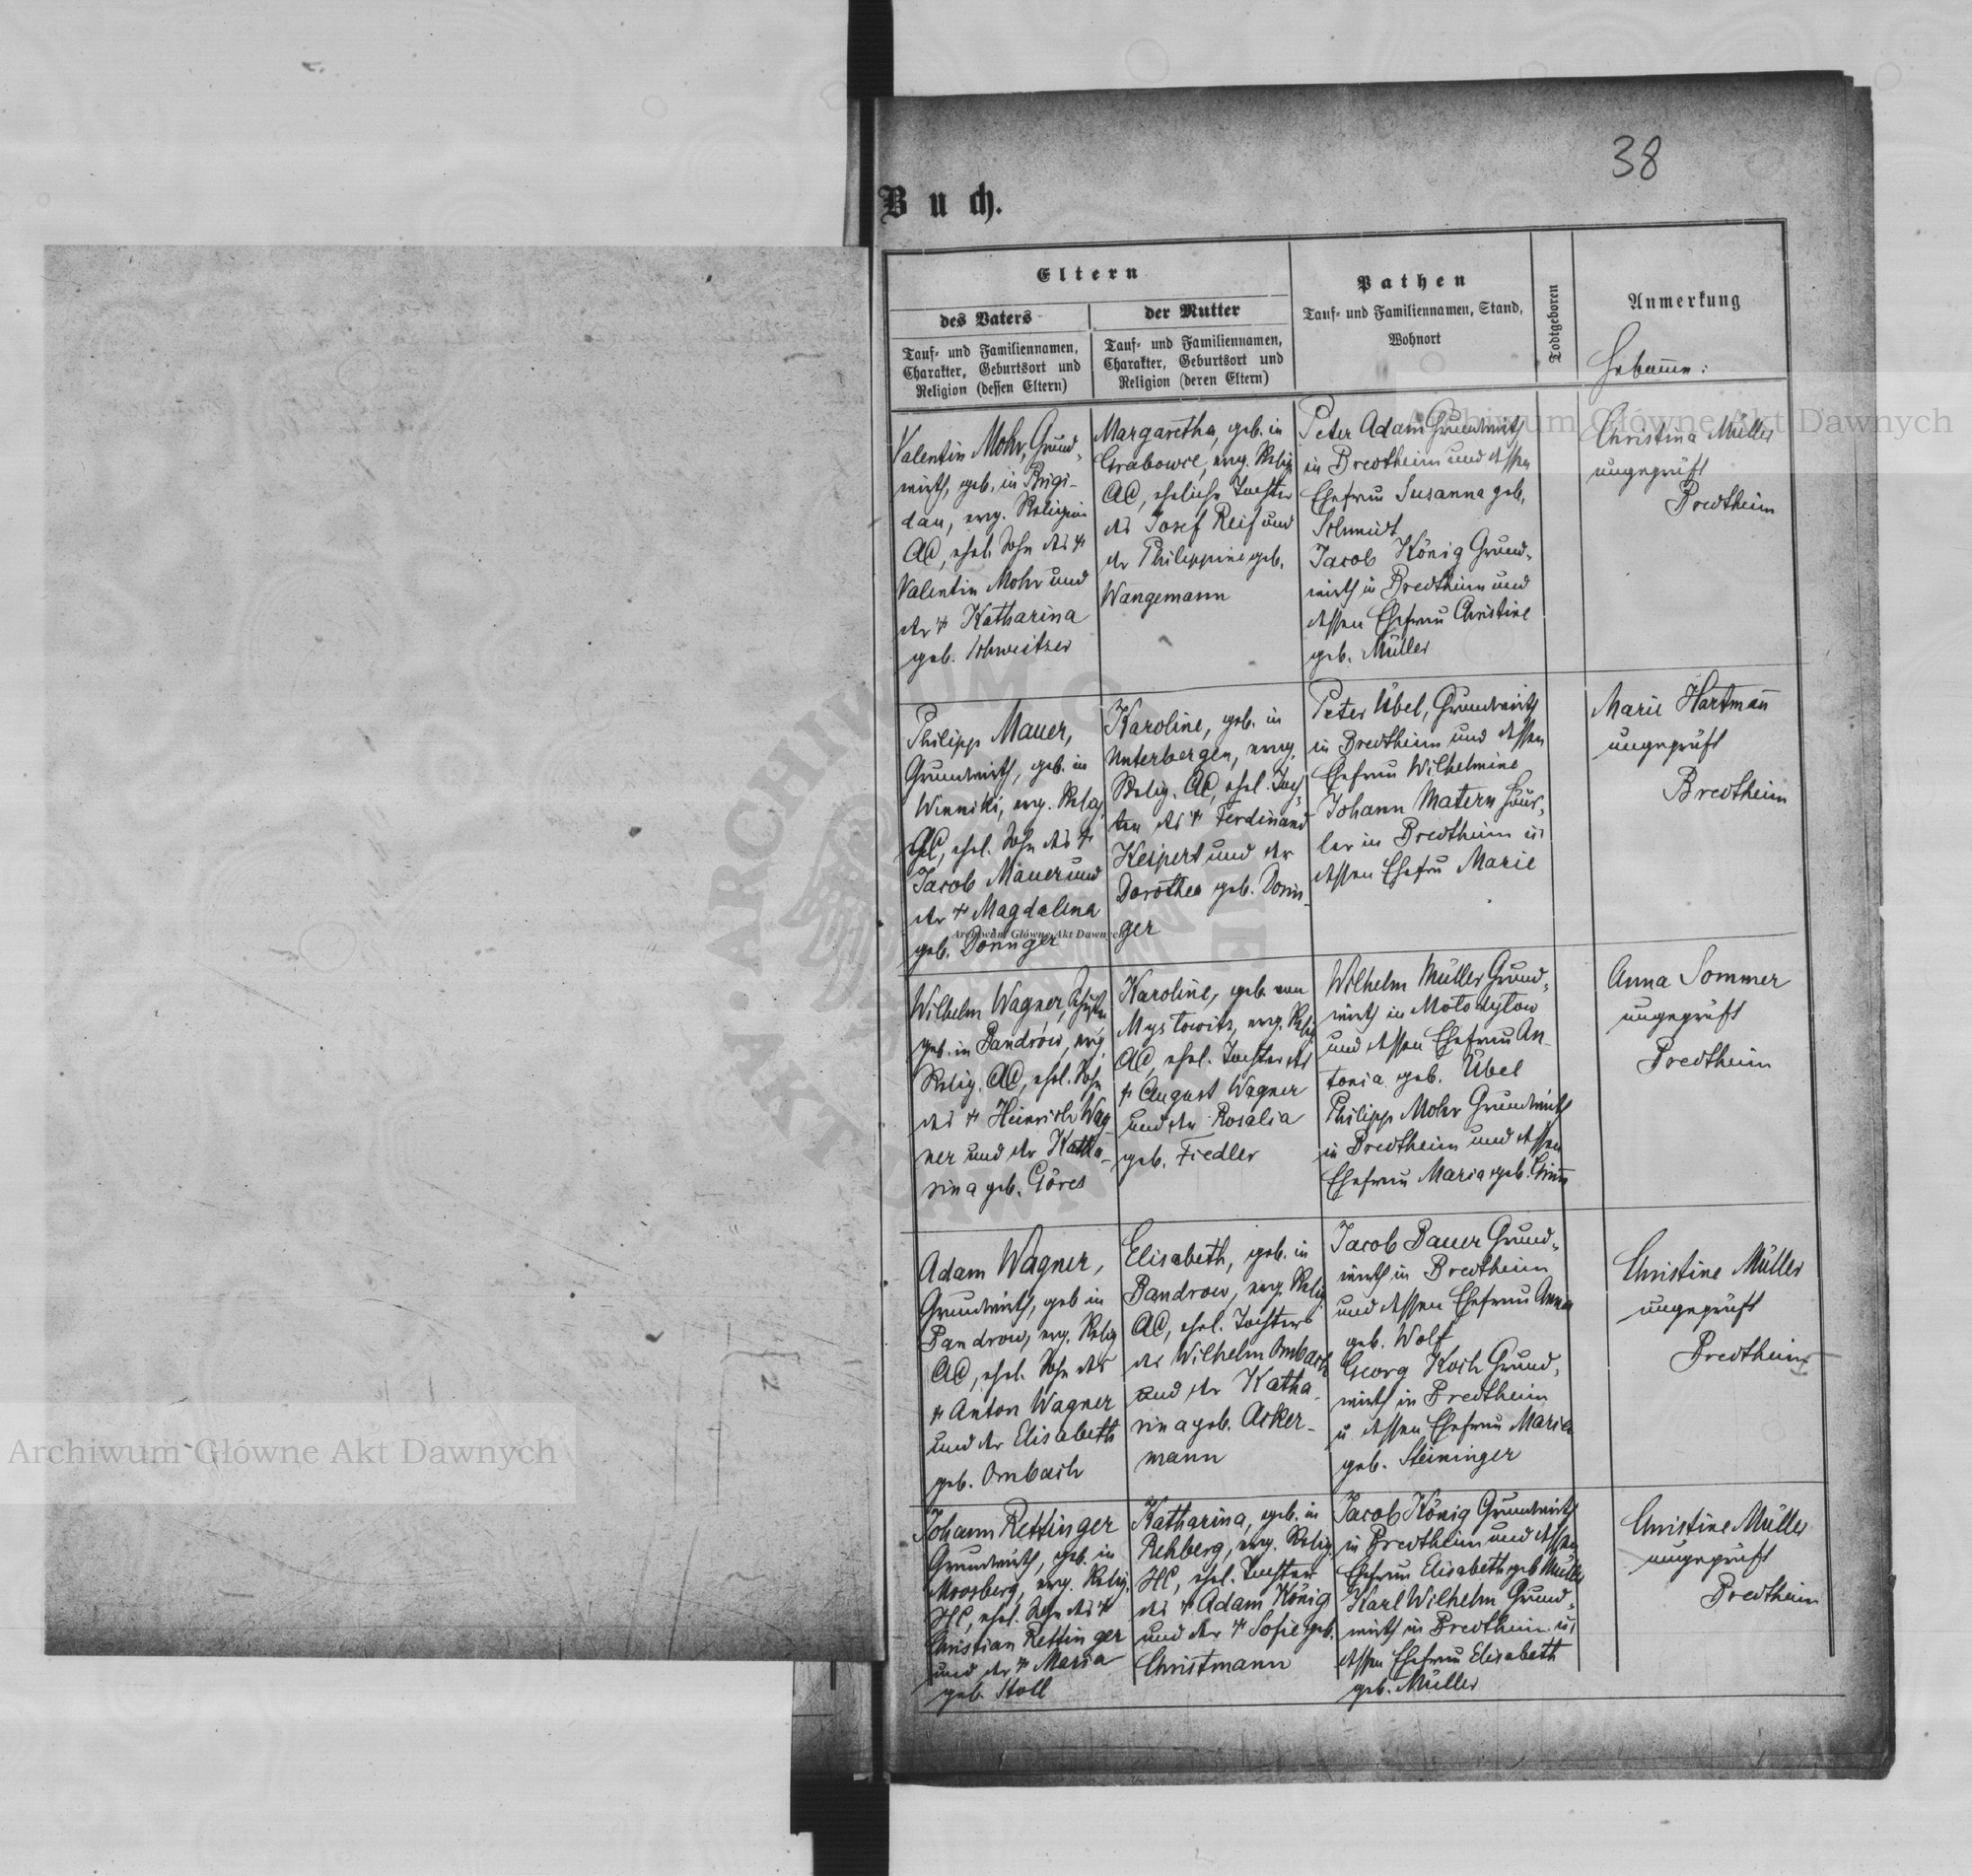 38
Buch.
Eltern
des Vaters
Tauf- und Familiennamen,
Charakter, Geburtsort und
Religion (dessen Eltern)
der Mutter
Tauf- und Familiennamen,
Charakter, Geburtsort und
Religion (deren Eltern)
Pathen
Tauf- und Familiennamen, Stand,
Wohnort
Todtgeboren
Anmerkung
Hebamme:
Valentin Mohr, Grund-
wirth, geb. in Brigi-
dau, evg. Religion
AC, ehel. Sohn des †
Valentin Mohr und
der † Katharina
geb. Schweitzer
Margaretha, geb. in
Grabowce, evg. Relig.
AC, eheliche Tochter
des Josef Reif und
der Philippine geb.
Wangemann
Peter Adam Grundwirth
in Bredtheim und dessen
Ehefrau Susanna geb.
Schmidt
Jacob König Grund-
wirth in Bredtheim und
dessen Ehefrau Christine
geb. Müller
Christina Müller
ungeprüft
Bredtheim
Philipp Mauer,
Grundwirth, geb. in
Winniki, evg. Relig.
HC, ehel. Sohn des †
Jacob Mauer und
der † Magdalena
geb. Dominger
Karoline, geb. in
Unterbergen, evg.
Relig. AC, ehel. Toch-
ter des † Ferdinand
Keipert und der
Dorothea geb. Domin-
ger
Peter Übel, Grundwirth
in Bredtheim und dessen
Ehefrau Wilhelmine
Johann Matern Häus-
ler in Bredtheim u.
dessen Ehefrau Marie
Marie Hartmann
ungeprüft
Bredtheim
Wilhelm Wagner,
geb. in Bandrów, evg.
Relig. AC, ehel. Sohn
des † Heinrich Wag-
ner und der Katha-
rina geb. Göres
Karoline, geb. von
Mystowits, evg. Relig.
AC, ehel. Tochter des
† August Wagner
und der Rosalia
geb. Fiedler
Wilhelm Müller Grund-
wirth in Molodylow
und dessen Ehefrau An-
tonia geb. Übel
Philipp Mohr Grundwirth
in Bredtheim und dessen
Ehefrau Maria geb.
Anna Sommer
ungeprüft
Bredtheim
Adam Wagner,
Grundwirth, geb in
Bandrow, evg. Relig.
AC, ehel. Sohn des
† Anton Wagner
und der Elisabeth
geb. Ombach
Elisabeth, geb. in
Bandrow, evg. Relig.
AC, ehel. Tochter
des Wilhelm Ombach
und der Katha-
rina geb. Acker-
mann
Jacob Bauer Grund-
wirth in Bredtheim
und dessen Ehefrau Anna
geb. Wolf
Georg Koch Grund-
wirth in Bredtheim
u. dessen Ehefrau Marie
geb. Steininger
Christine Müller
ungeprüft
Bredtheim
Johann Rettinger
Grundwirth, geb. in
Moosberg, evg. Relig.
HC, ehel. Sohn des †
Christian Rettinger
und der † Maria
geb. Stoll
Katharina, geb. in
Rehberg, evg. Relig.
HC, ehel. Tochter
des † Adam König
und der † Sofie geb.
Christmann
Jacob König Grundwirth
in Bredtheim und dessen
Ehefrau Elisabeth geb Müller
Karl Wilhelm Grund-
wirth in Bredtheim u.
dessen Ehefrau Elisabeth
geb. Müller
Christine Müller
ungeprüft
Bredtheim
Archiwum Główne Akt Dawnych
Archiwum Główne Akt Dawnych
Archiwum Główne Akt Dawnych